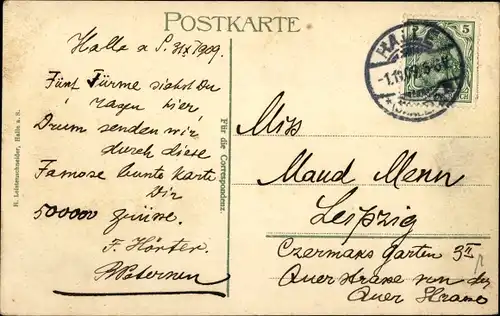 POSTKARTE
Halle a S. 31/X 1909.
Fünf Türme siehst Du
ragen hier,
Drum senden wir
durch diese
Famose bunte Karte
Dir
500000
F. Hörter.
H. Lederschneider, Halle a. S.
Für die Correspondenz.
HALLE
-1.11.09.
5
Miss
Maud Menn
Leipzig
Czermaks Garten 3 II
Querstrasse von der
Querstrasse